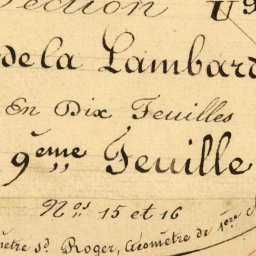 Section U
de la Lambard
En Dix Feuilles
9ème Feuille
Nos 15 et 16
mètre sd. Roger, Géomètre de 1ère